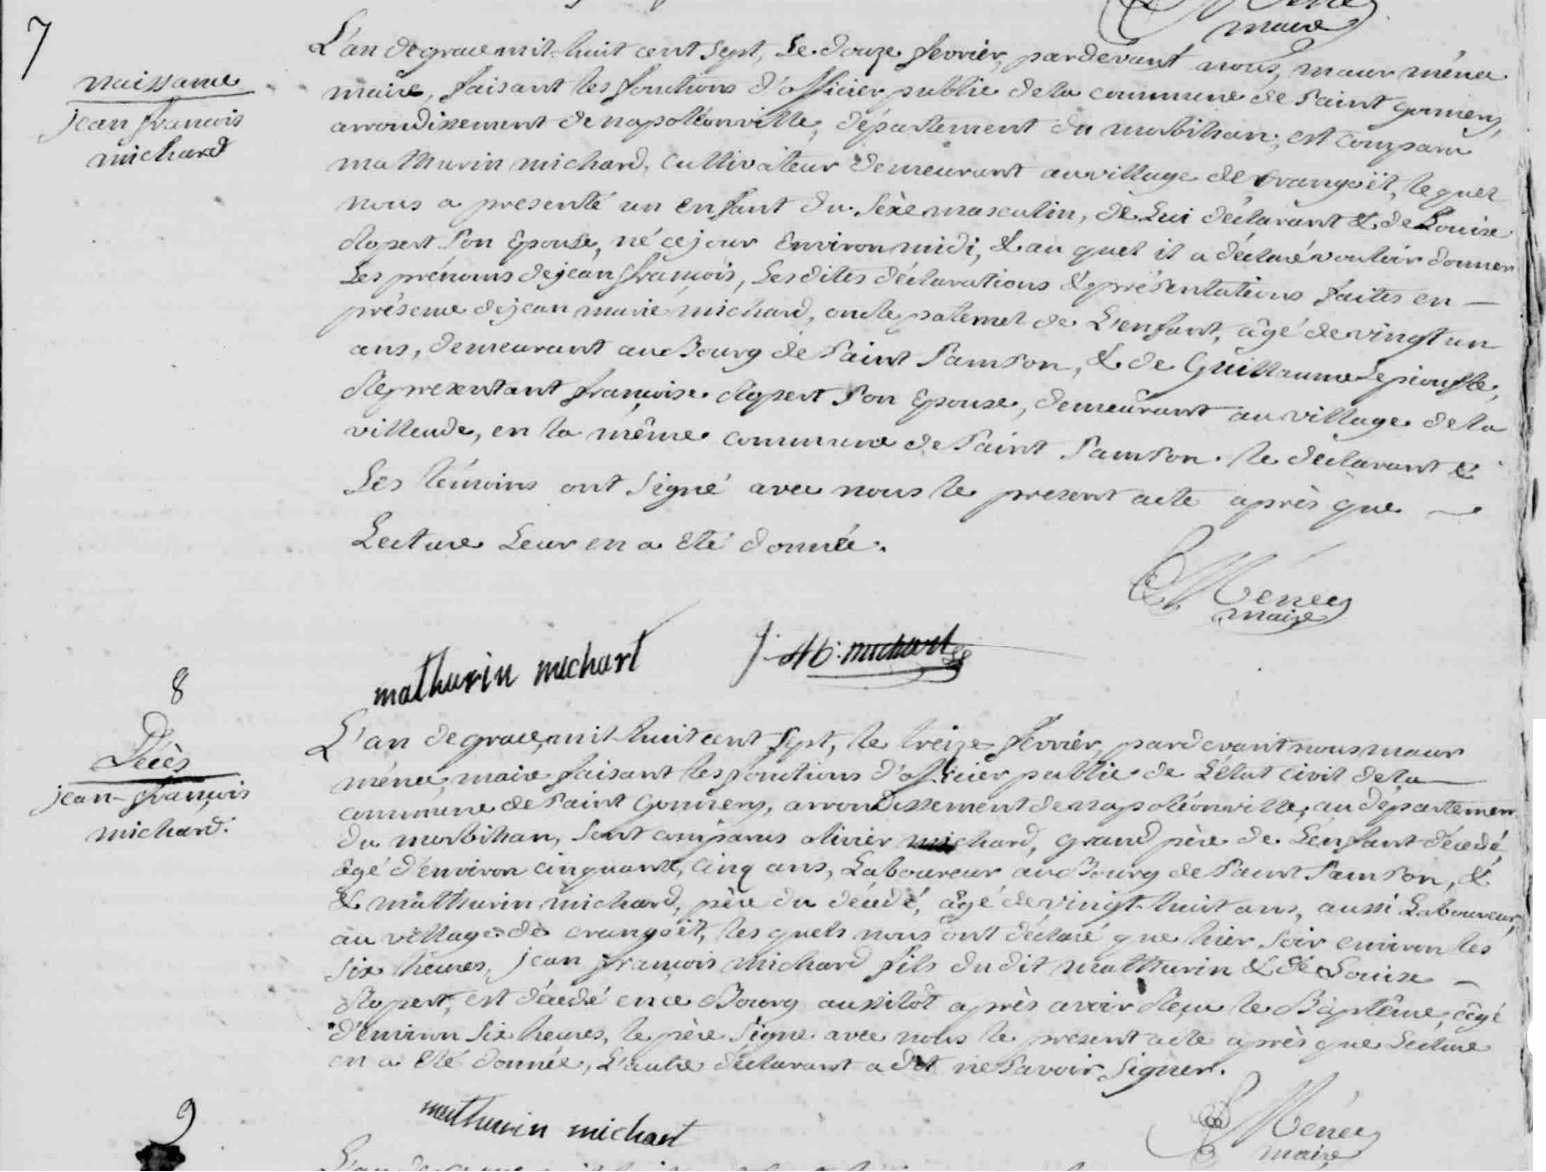 maire
7
naissance
jean françois
michard
L'an de grace mil-huit cent sept, le douze fevrier, pardevant nous, maur ménec
maire, faisant les fonctions d'officier public de la commune de Saint gonnery,
arrondissement de napoléonville, département du morbihan, est comparu
mathurin michard, cultivateur demeurant au village de crangoët, lequel
nous a presenté un enfant du sèxe masculin, de lui déclarant & de Louise
Ropert son épouse, né ce jour environ midi, & au quel il a déclaré vouloir donner
les prénoms de jean françois, les dites déclarations & présentations faites en
présence de jean marie michard, oncle paternel de l'enfant, âgé de vingt un
ans, demeurant au Bourg de Saint Samson, & de Guillaume
Représentant françoise Ropert son épouse, demeurant au village de la
en la même commune de Saint Samson. le déclarant &
Les témoins ont signé avec nous le present acte après que
Lecture Leur en a été donnée.
Ménec
maire
mathurin michart
J. M. michart
8
Décès
jean-françois
michard.
L'an de grace, mil-huit cent sept, le treize fevrier, pardevant nous maur
ménec, maire faisant les fonctions d'officier public de l'état civil de la
commune de Saint Gonnery, arrondissement de napoléonville, au départemen
du morbihan, sont comparus olivier michard, grand père de l'enfant décédé
âgé d'environ cinquante, cinq ans, Laboureur au Bourg de Saint Samson, &
& mathurin michard, père du décédé, âgé de vingt-huit ans, aussi Laboureur,
au village de crangoët, les quels nous ont déclaré que hier soir environ les
six heures, jean françois michard fils du dit mathurin & de Louise
Ropert, est décédé en ce Bourg aussitôt après avoir Reçu le Baptême, âgé
d'environ six heures, le père signe avec nous le present acte après que Lecture
en a été donnée, L'autre déclarant a dit ne savoir signer.
mathurin michart
Ménec
maire
9